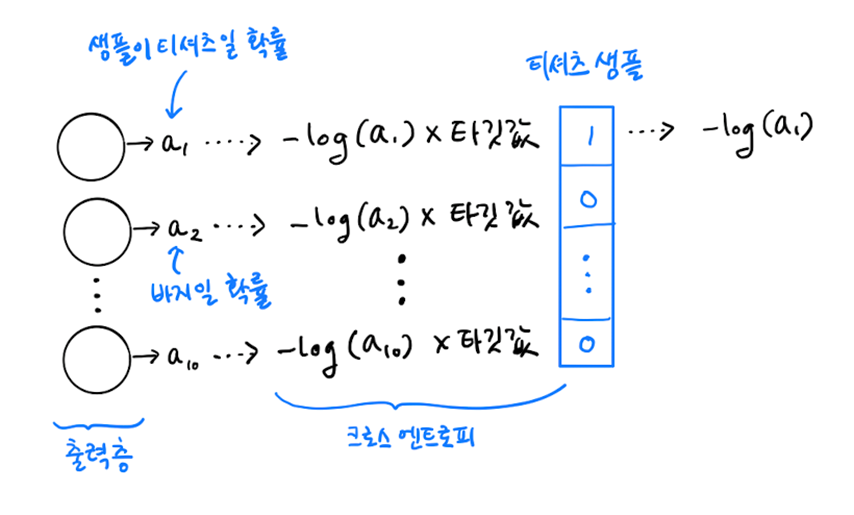 샘플이 티셔츠일 확률
티셔츠 샘플
→ a₁ ····> -log(a₁) × 타깃값 1 ···> -log(a₁)
→ a₂ ····> -log(a₂) × 타깃값 0
바지일 확률
→ a₁₀ ···> -log(a₁₀) × 타깃값 0
크로스 엔트로피
출력층